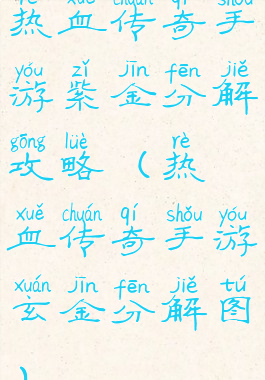 热血传奇手
yóu zǐ jīn fēn jiě
游紫金分解
gōng lüè rè
攻略（热
xuě chuán qí shǒu yóu
血传奇手游
xuán jīn fēn jiě tú
玄金分解图
）